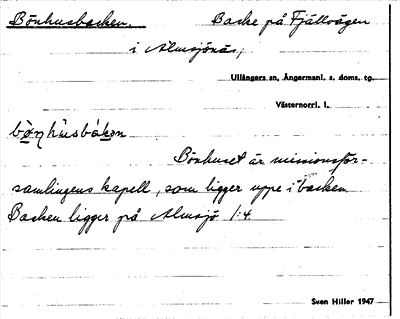 Bönhusbacken. Backe på Fjällvägen
i Älmsjönäs;
Ullångers sn, Ångermanl. s. doms. tg.
Västernorrl. l.
Bönhuset är missionsför-
samlingens kapell, som ligger uppe i backen.
Backen ligger på Älmsjö 1:4.
Sven Hiller 1947